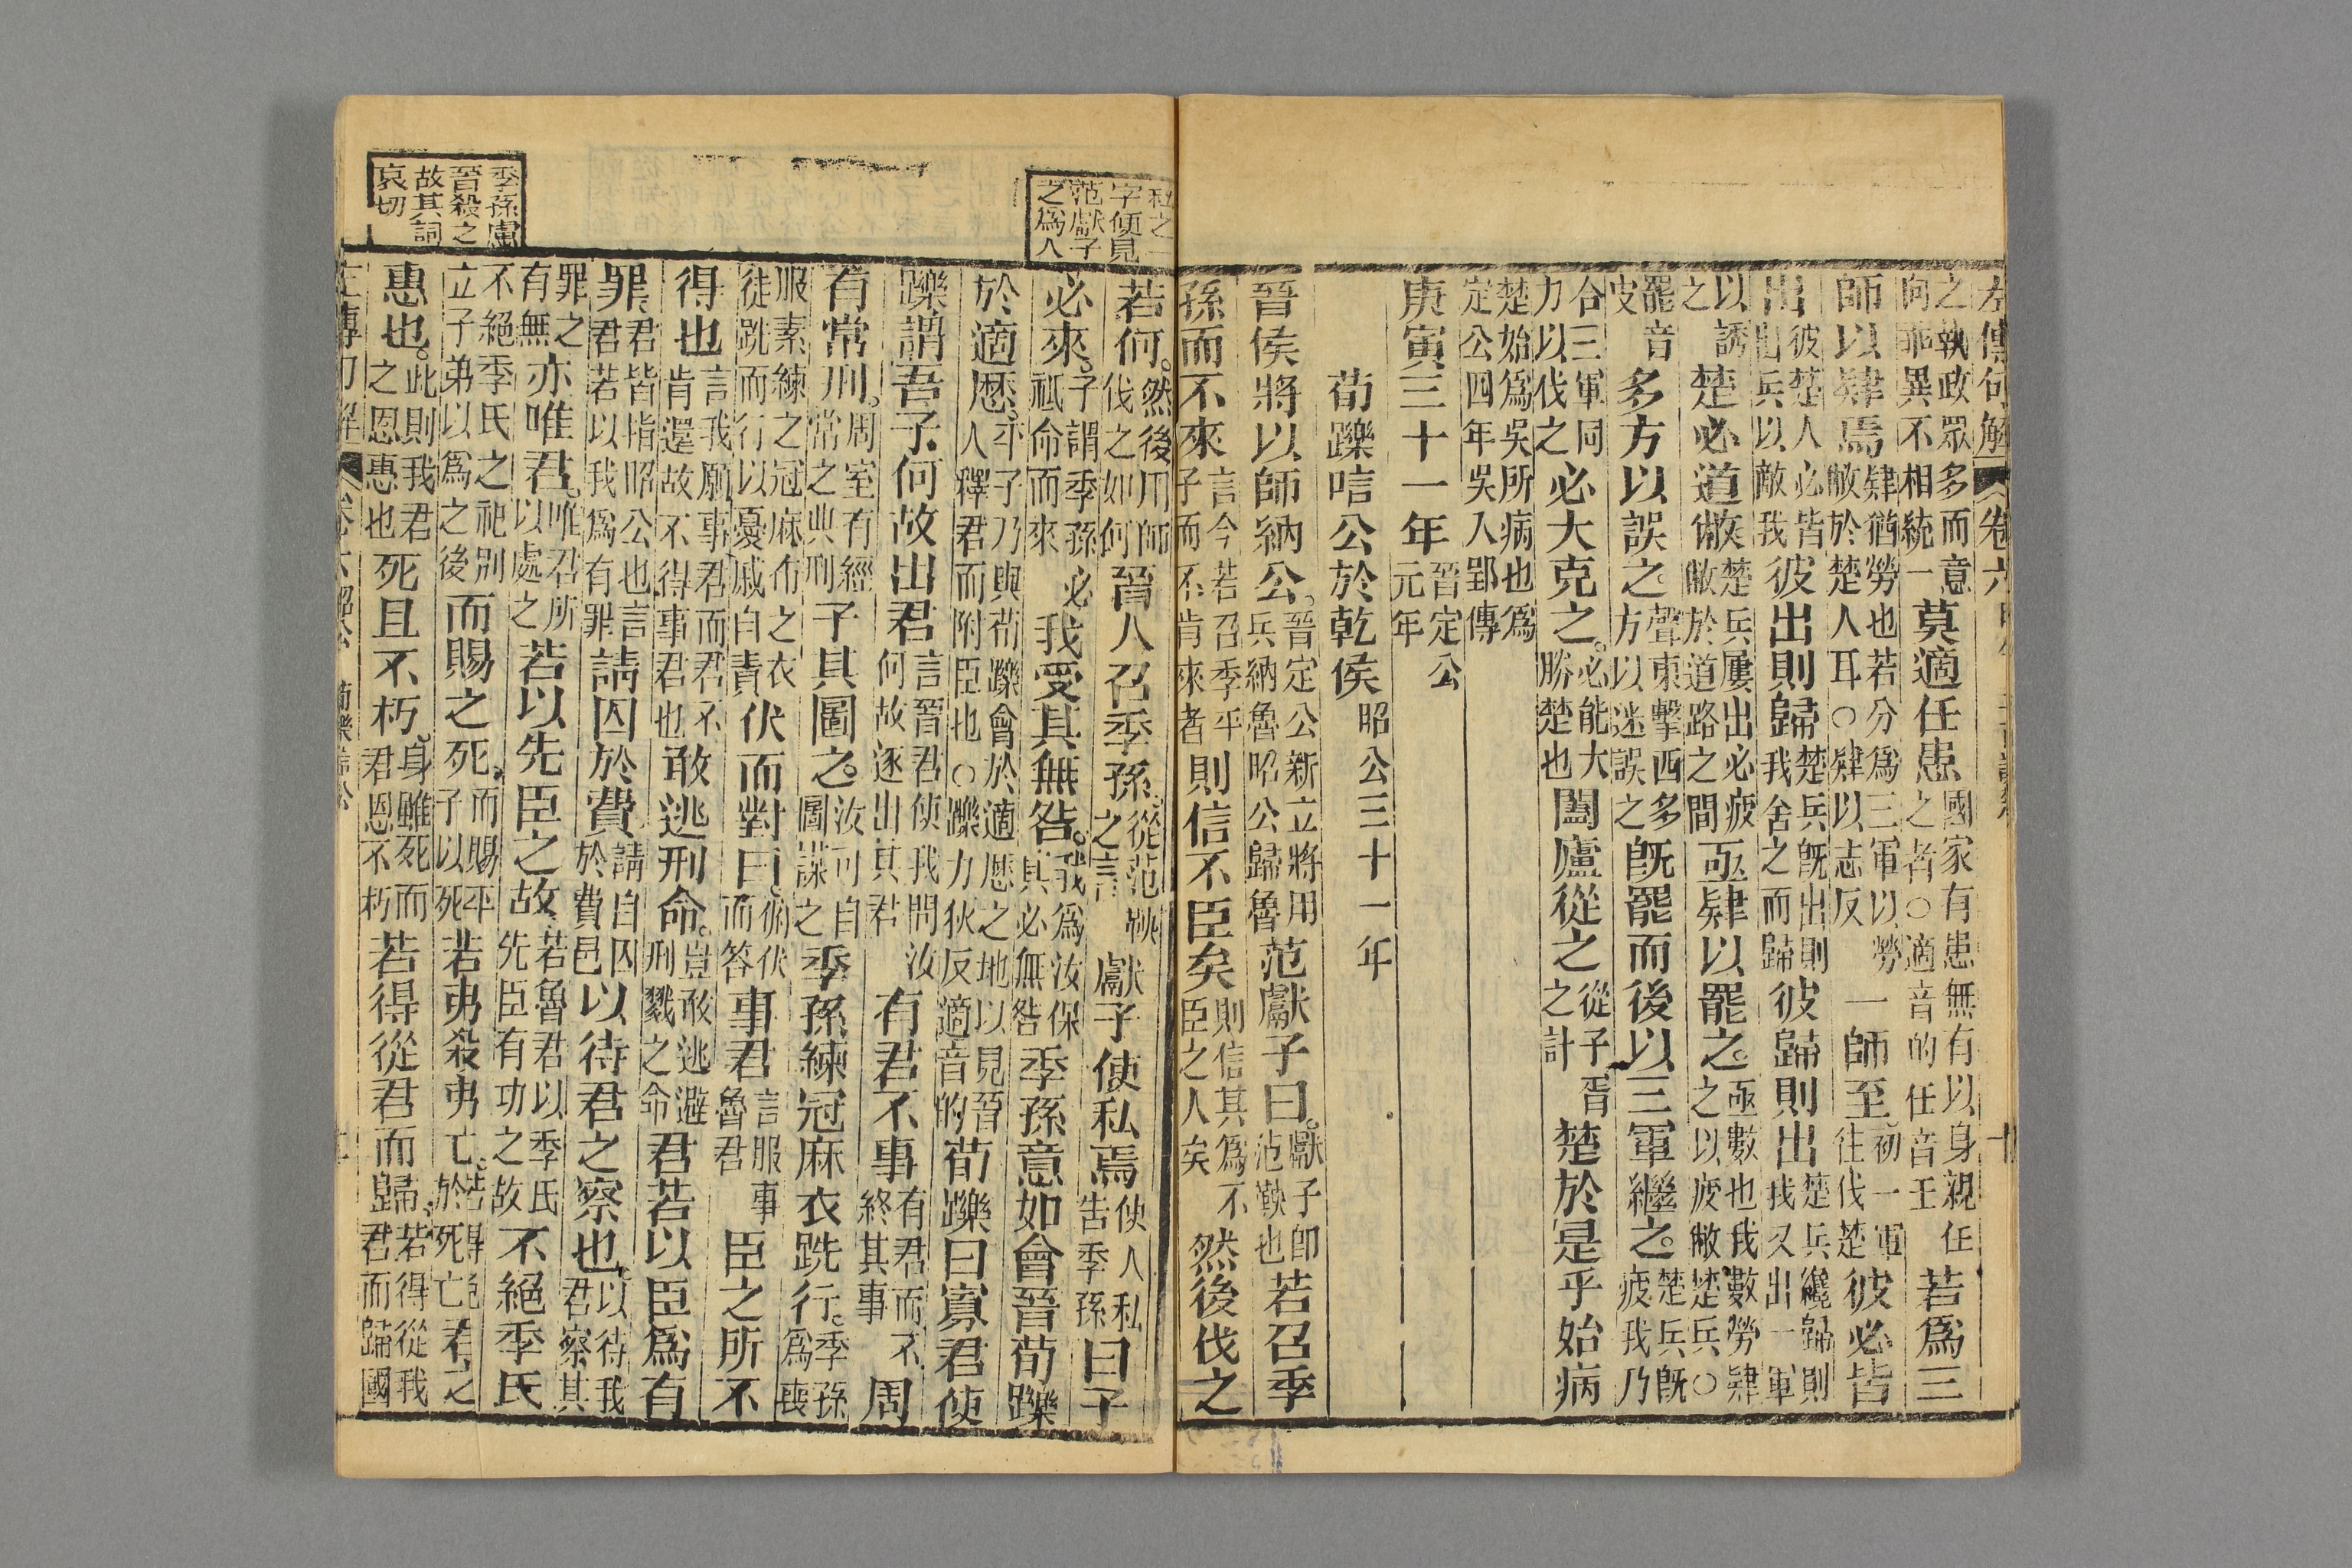 左傳句解 卷六
之執政眾多而意向乖異不相統一莫適任患國家有患無有以身親任之者○適音的任音壬若爲三
師以肄焉肄猶勞也若分爲三軍以勞敝於楚人耳○肄以志反一師至初一軍往伐楚彼必皆
出彼楚人必皆出兵以敵我彼出則歸楚兵旣出則我舍之而歸彼歸則出楚兵纔歸則我又出一軍
以誘之楚必道敝楚兵屢出必疲敝於道路之間亟肄以罷之亟數也我數勞肄之以疲敝楚兵○
罷音皮多方以誤之聲東擊西多方以迷誤之旣罷而後以三軍繼之楚兵旣疲我乃
合三軍同力以伐之必大克之必能大勝楚也闔廬從之從子胥之計楚於是乎始病
楚始爲吳所病也爲定公四年吳入郢傳
庚寅三十一年晉定公元年
荀躒唁公於乾侯昭公三十一年
晉侯將以師納公晉定公新立將用兵納魯昭公歸魯范獻子曰獻子卽范鞅也若召季
孫而不來言今若召季平子而不肯來者則信不臣矣則信其爲不臣之人矣然後伐之
私之一字便見范獻子之爲人
若何然後用師伐之如何晉人召季孫從范鞅之言獻子使私焉使人私告季孫曰子
必來子謂季孫必祗命而來我受其無咎我爲汝保其必無咎季孫意如會晉荀躒
於適歷平子乃與荀躒會於適歷之地以見晉人釋君而附臣也○躒力狄反適音的荀躒曰寡君使
躒謂吾子何故出君言晉君使我問汝何故逐出其君有君不事有君而不終其事周
有常刑周室有經常之典刑子其圖之汝可自圖謀之季孫練冠麻衣跣行季孫爲喪
服素練之冠麻布之衣徒跣而行以憂戚自責伏而對曰俯伏而答事君言服事魯君臣之所不
得也言我願事君而君不肯還故不得事君也敢逃刑命豈敢逃避刑戮之命君若以臣爲有
罪君皆指昭公也言君若以我爲有罪請囚於費請自囚於費邑以待君之察也以待我君察其
罪之有無亦唯君唯君所以處之若以先臣之故若魯君以季氏先臣有功之故不絕季氏
不絕季氏之祀別立子弟以爲之後而賜之死而賜平子以死若弗殺弗亡若得免於死亡君之
惠也此則我君之恩惠也死且不朽身雖死而君恩不朽若得從君而歸若得從我君而歸國
季孫慮晉殺之故其詞哀切
左傳句解 卷六昭公 荀躒唁公